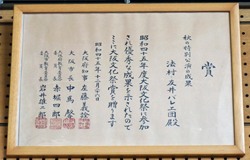 賞
秋の特別公演の成果
法村友井バレエ団殿
昭和四十五年度大阪文化祭に参加
され優秀な成果を示されたので
ここに大阪文化祭賞を贈ります
昭和四十五年
大阪府知事 左藤義詮
大阪市長 中馬馨
赤堀四郎
岩井雄二郎